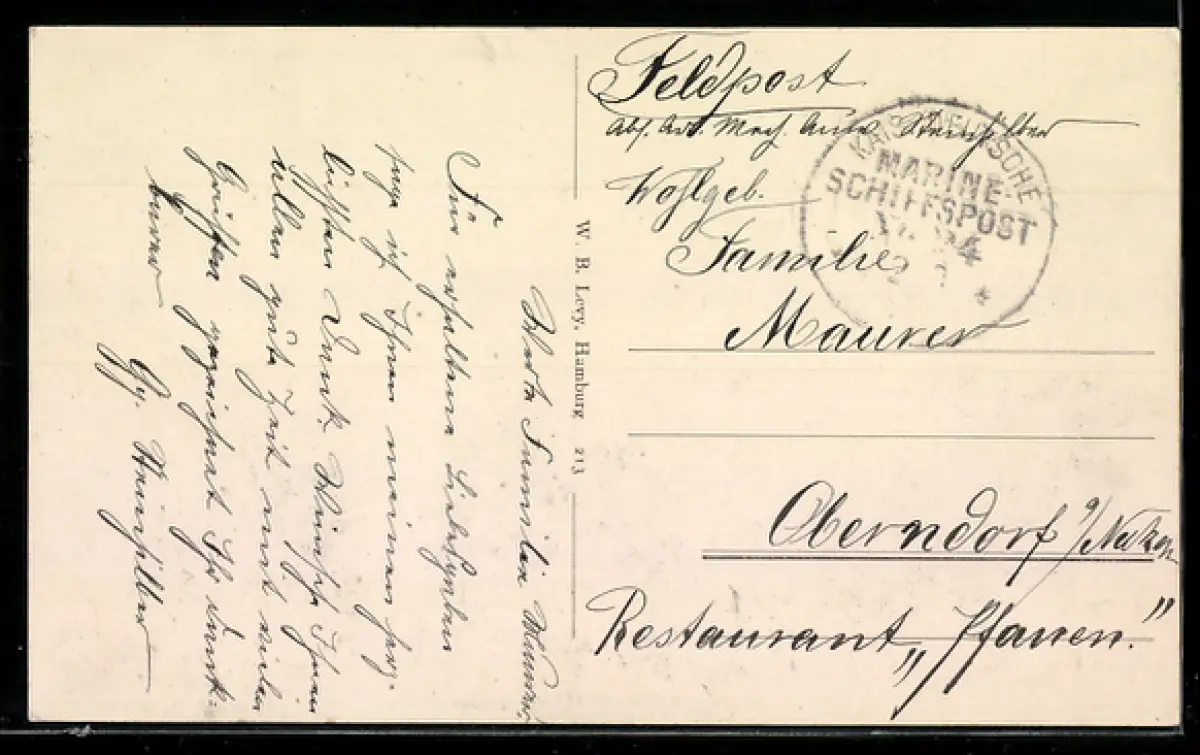 Feldpost
Abs. Art. Mech. Steinhilber
Wohlgeb.
Familie
Maurer
Oberndorf a/Neckar
Restaurant „Pfauen."
KAIS. DEUTSCHE
MARINE-
SCHIFFSPOST
24
W. B. Levy, Hamburg 213
Werte Familie Maurer,
Für erhaltene Liebesgaben
sage ich Ihnen meinen herz-
lichsten Dank. Wünsche Ihnen
allen gute Zeit und vielen
Grüßen zeichnet Ihr dank-
barer
Steinhilber